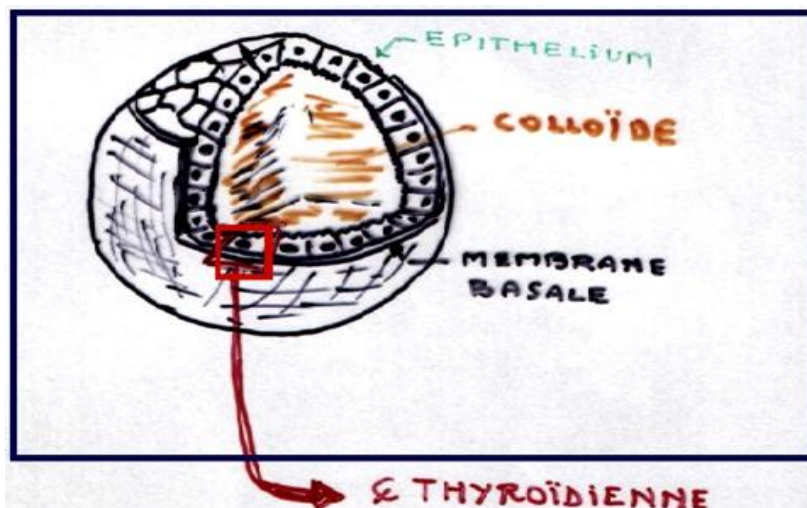 EPITHELIUM
COLLOÏDE
MEMBRANE
BASALE
₵ THYROÏDIENNE